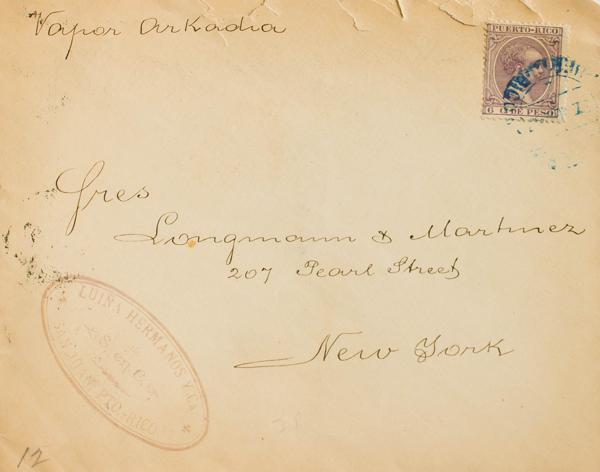 Vapor Arkadia
PUERTO-RICO
6 C. DE PESO
Sres
Longmann & Martinez
207 Pearl Street
New York
LUIÑA HERMANOS Y Ca
S. en C.
SAN JUAN PTO.-RICO
12